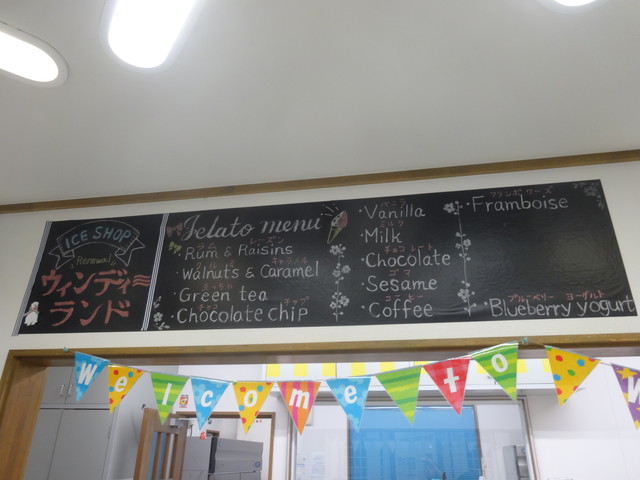 ICE SHOP
Renewal
ウィンディー
ランド
Jelato menu
ラム レーズン
・Rum & Raisins
キャラメル
・Walnuts & Caramel
まっちゃ
・Green tea
チョコ チップ
・Chocolate chip
バニラ
・Vanilla
ミルク
・Milk
チョコレート
・Chocolate
ゴマ
・Sesame
コーヒー
・Coffee
フランボワーズ
・Framboise
ブルーベリー ヨーグルト
・Blueberry yogurt
Welcome to W